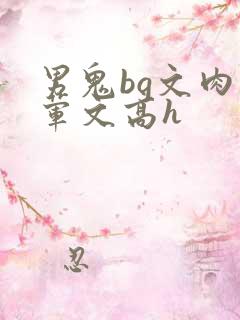 男鬼bg文肉
军文高h
忍